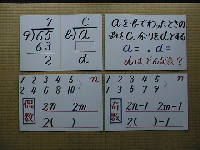 7
9)65
63
2
c
b)a
d
aをbでわったときの
商をc、余りをdとする
a=　.　d=
dはどんな数?
1 2 3 4 5 n
2 4 6 8 10
偶数
2n 2m
2( )
1 2 3 4 5 n
1 3 5 7 9
奇数
2n-1 2m-1
2( )-1